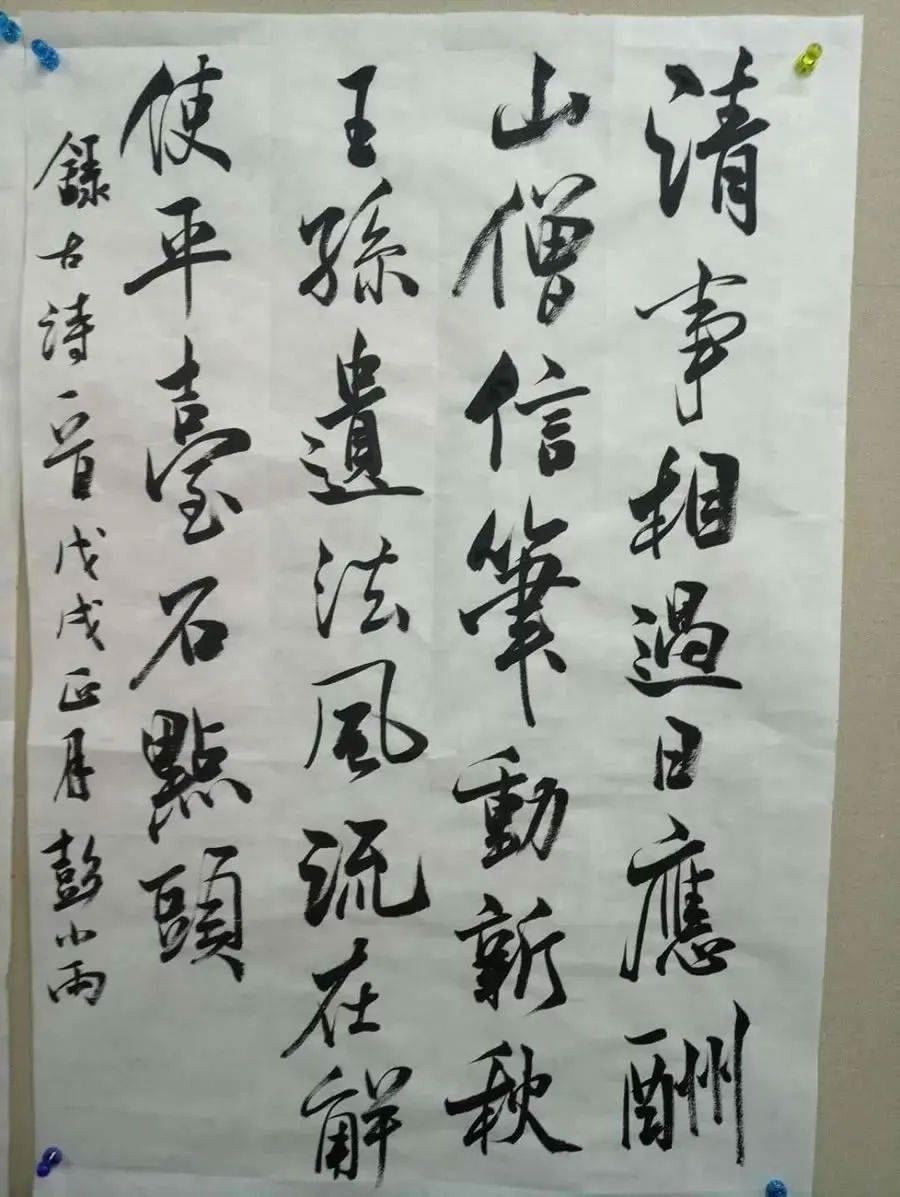 清事相過日應酬
山僧信筆動新秋
王孫遺法風流在解
使平臺石點頭
錄古詩一首戊戌正月彭小雨